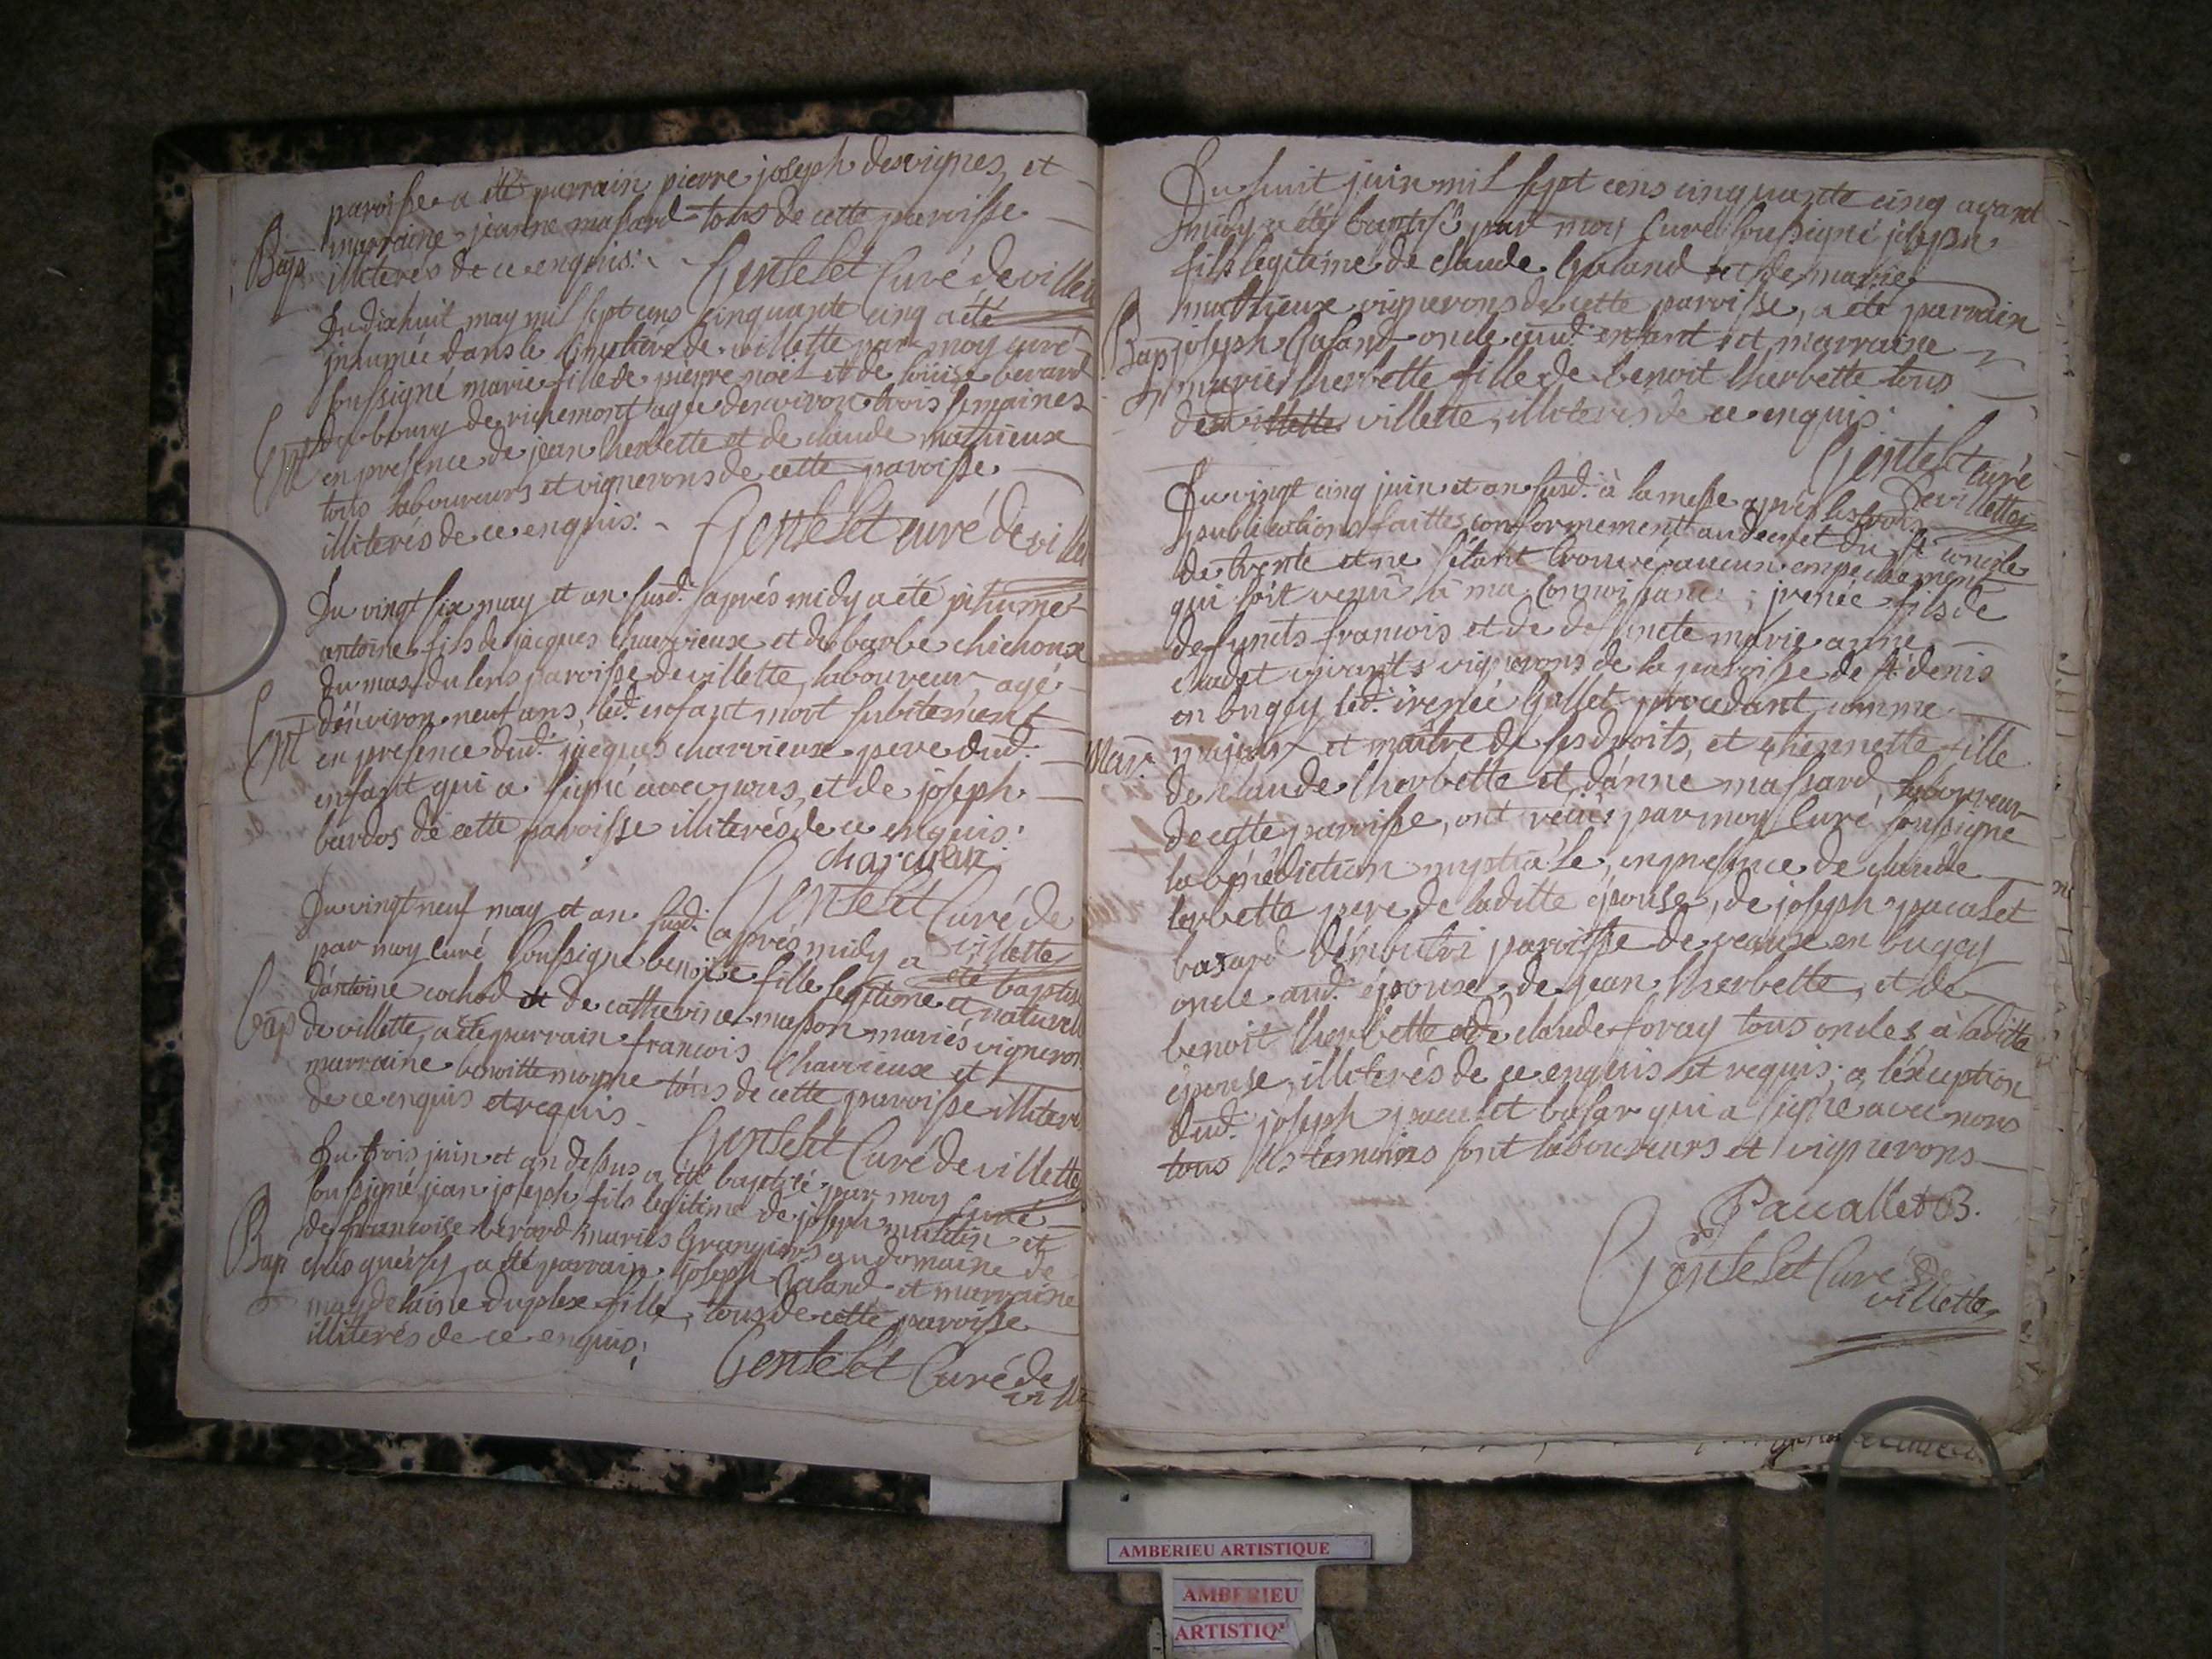 paroisse a été parrain pierre joseph desvignes, et
marraine jeanne massard tous de cette paroisse
Bap illiterés de ce enquis. Gentelet Curé de villett
Du dixhuit may mil sept cens cinquante cinq a été
inhumée dans le Cimetiere de villette par moy curé
soussigné marie fille de pierre noël et de loüise berard
du bourg de richemont agée denviron trois semaines
Ent en presence de jean lherbette et de claude mathieux
tous laboureurs et vignerons de cette paroisse
illiterés de ce enquis. Gentelet curé de villet
Du vingt six may et an susd. après midy a été inhumé
antoine fils de jacques charvieux et de barbe chichoux
du mas du lens paroisse de villette laboureur, agé
d'énviron neuf ans, led. enfant mort subitement
Ent en presence dud. jacques charvieux pere dud.
enfant qui a signé avec nous, et de joseph
bardos de cette paroisse illiterés de ce enquis.
charvieux
Gentelet Curé de
villette
Du vingt neuf may et an susd. après midy a été baptisé
par moy Curé soussigné benoîte fille legitime et naturell
d'antoine cochod et de catherine masson mariés vigneron
Bap de villette, a été parrain francois Charvieux et
marraine benoitte moyne tous de cette paroisse illiteré
de ce enquis et requis
Gentelet Curé de villette
Du trois juin et an dessus a été baptisé par moy Curé
soussigné jean joseph fils legitime de joseph
de francoise berard mariés Grangiers au domaine de
Bap a été parrain joseph Galand et marraine
magdelaine duplex fille, tous de cette paroisse
illiterés de ce enquis,
Gentelet Curé de
vill
Du huit juin mil sept cens cinquante cinq avant
midy a été baptisé par moy Curé soussigné joseph
fils legitime de claude Galand et de marie
mathieux vignerons de cette paroisse, a été parrain
Bap joseph Galand oncle aud. enfant et marraine
marie lherbette fille de benoit lherbette tous
de villette villette, illiterés de ce enquis.
Gentelet curé
de villette
Du vingt cinq juin et an susd. à la messe après les trois
publications faittes conformement au decret du st. concile
de trente et ne s'étant trouvé aucun empechement
qui soit venû à ma connoissance; irenée fils de
defuncts francois et de defuncte marie anne
cladet vivants vignerons de la paroisse de st. denis
en bugey led. irenée Gallet procedant comme
Mar. majeur et maître de ses droits, et ethiennette fille
de claude lherbette et d'anne massard, laboureur
de cette paroisse, ont recüs par moy Curé soussigné
la bénédiction nuptiale, en presence de claude
lerbette pere de laditte épouse, de joseph pacalet
basard d'embutri paroisse de veaux en bugey
oncle aud. épouse de jean lherbette, et de
benoit lherbette et de claude foray tous oncles à laditte
épouse, illiterés de ce enquis et requis; a l'exception
dud. joseph pacalet basar qui a signé avec nous
tous les temoins sont laboureurs et vignerons
Paccallet B.
Gentelet Curé de
villette
AMBERIEU ARTISTIQUE
AMBERIEU
ARTISTIQ